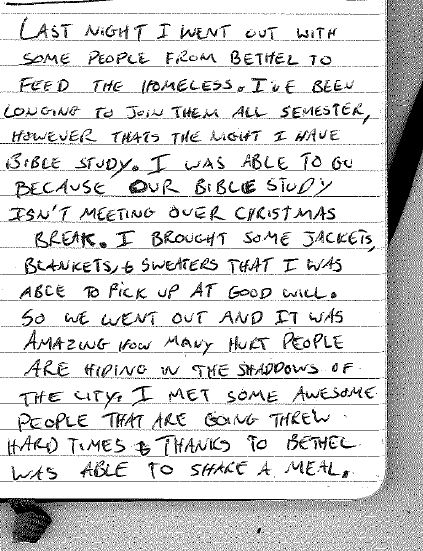 LAST NIGHT I WENT OUT WITH
SOME PEOPLE FROM BETHEL TO
FEED THE HOMELESS. I'VE BEEN
LONGING TO JOIN THEM ALL SEMESTER,
HOWEVER THATS THE NIGHT I HAVE
BIBLE STUDY. I WAS ABLE TO GO
BECAUSE OUR BIBLE STUDY
ISN'T MEETING OVER CHRISTMAS
BREAK. I BROUGHT SOME JACKETS,
BLANKETS, & SWEATERS THAT I WAS
ABLE TO PICK UP AT GOOD WILL.
SO WE WENT OUT AND IT WAS
AMAZING HOW MANY HURT PEOPLE
ARE HIDING IN THE SHADDOWS OF
THE CITY. I MET SOME AWESOME
PEOPLE THAT ARE GOING THREW
HARD TIMES & THANKS TO BETHEL
WAS ABLE TO SHARE A MEAL.